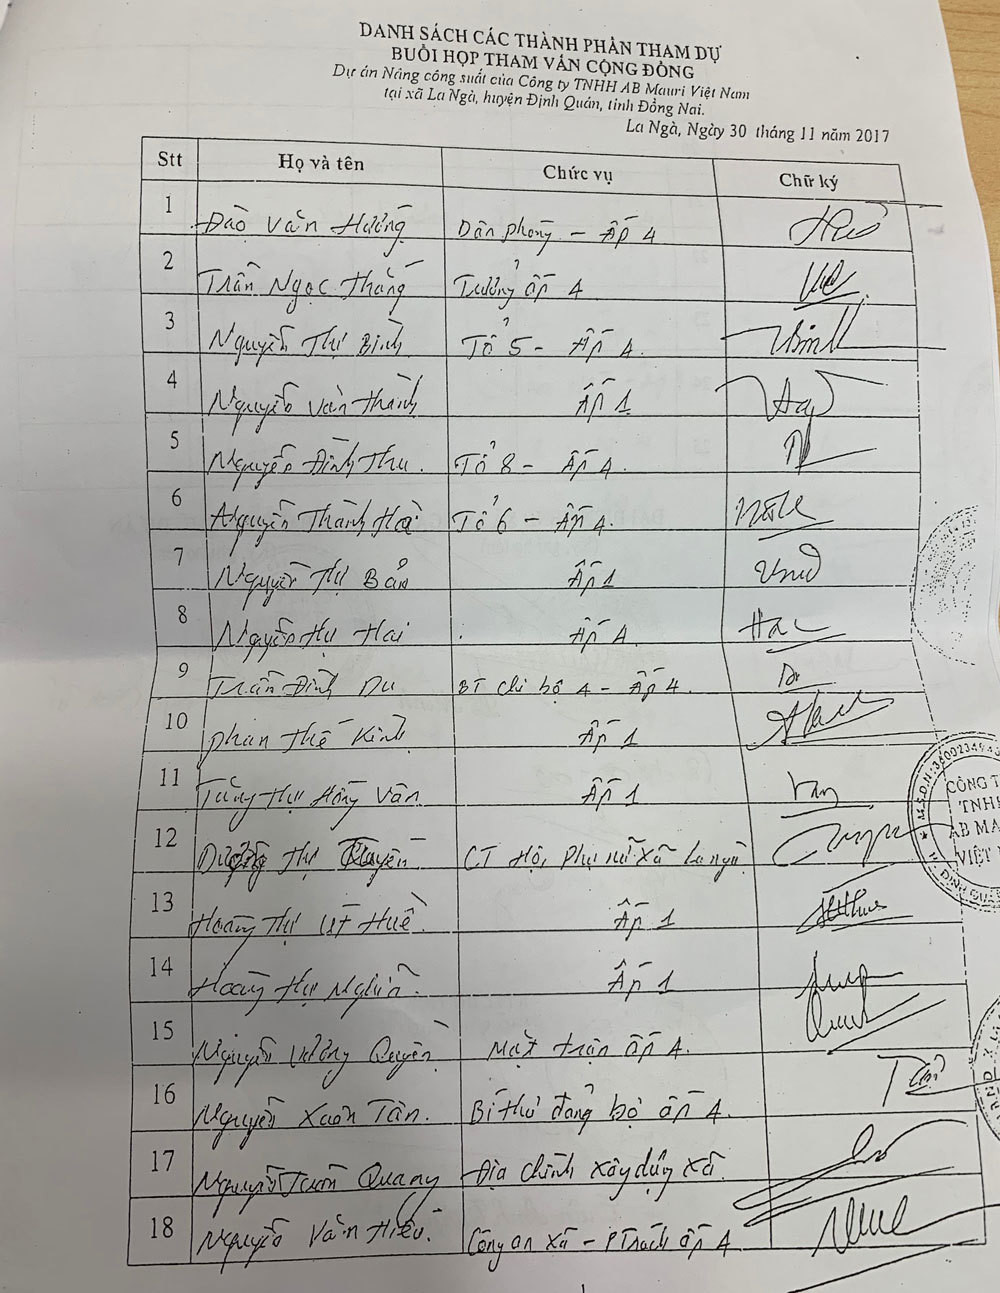 DANH SÁCH CÁC THÀNH PHẦN THAM DỰ
BUỔI HỌP THAM VẤN CỘNG ĐỒNG
Dự án Nâng công suất của Công ty TNHH AB Mauri Việt Nam
tại xã La Ngà, huyện Định Quán, tỉnh Đồng Nai.
La Ngà, Ngày 30 tháng 11 năm 2017
Stt Họ và tên Chức vụ Chữ ký
1 Đào Văn Hưởng Dân phòng - Ấp 4
2 Trần Ngọc Thắng Trưởng ấp 4
3 Nguyễn Thị Bình Tổ 5 - Ấp 4.
4 Nguyễn Văn Thành Ấp 1
5 Nguyễn Đình Thu. Tổ 8 - Ấp 4.
6 Nguyễn Thành Hải Tổ 6 - Ấp 4.
7 Nguyễn Thị Bản Ấp 1
8 Nguyễn Thị Hai Ấp 4
9 Trần Đình Du Bí chi bộ 4 - Ấp 4.
10 Phan Thế Kính Ấp 1
11 Thị Hồng Vân Ấp 1
12 Dương Thị CT Hội Phụ nữ xã La ngà
13 Hoàng Thị Út Huề. Ấp 1
14 Hoàng Thị Ấp 1
15 Nguyễn Vương Quyền Mặt trận ấp 4.
16 Nguyễn Xuân Tân. Bí thư đảng bộ ấp 4.
17 Nguyễn Tuấn Quang Địa chính xây dựng xã.
18 Nguyễn Văn Hiếu. Công an xã - P Trách ấp 4
M.S.D.N: 36002349
CÔNG T
TNHH
AB MA
VIỆT